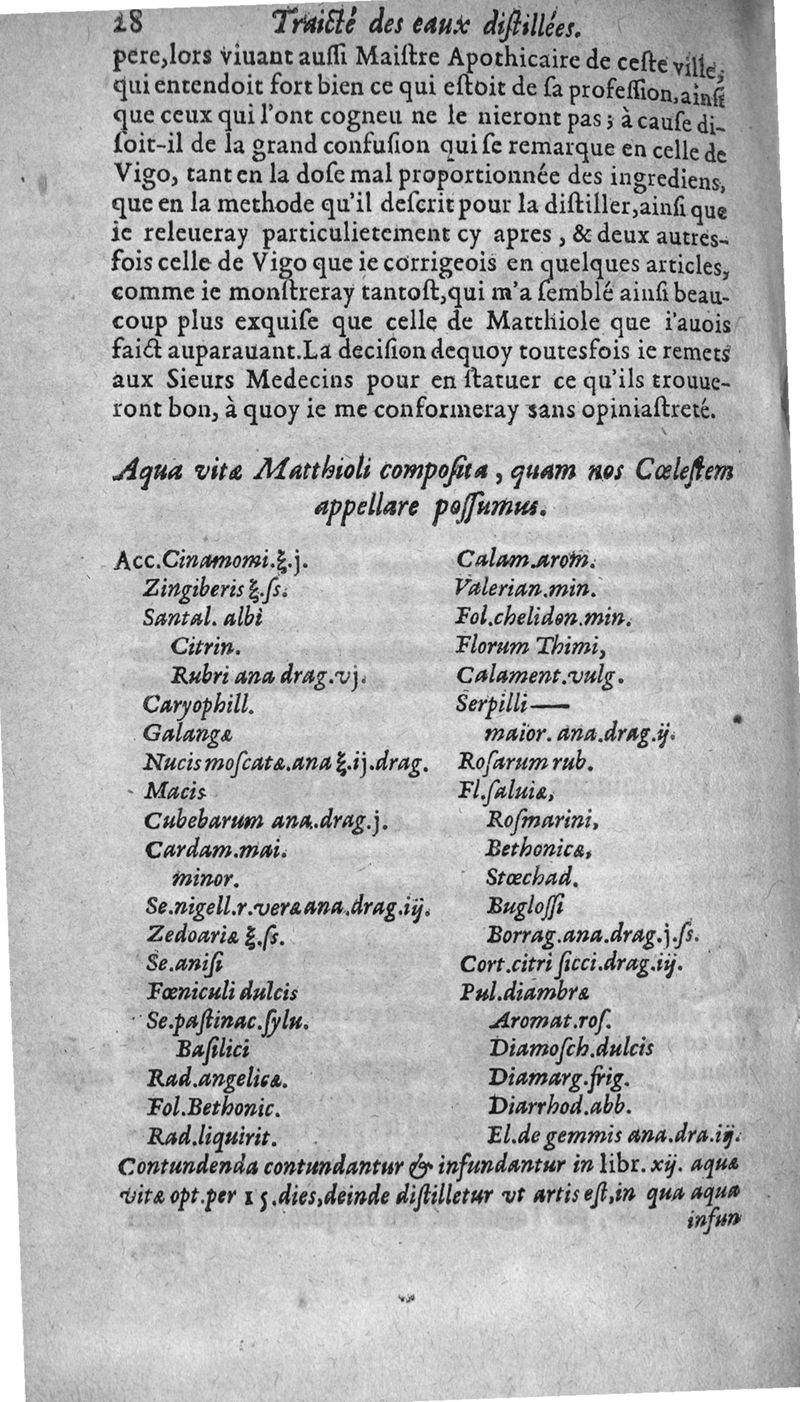 28 Traicté des eaux diſtillées.
pere,lors viuant auſſi Maiſtre Apothicaire de ceſte ville,
qui entendoit fort bien ce qui eſtoit de ſa profeſſion,ainſi
que ceux qui l'ont cogneu ne le nieront pas; à cauſe di-
ſoit-il de la grand confuſion qui ſe remarque en celle de
Vigo, tant en la doſe mal proportionnée des ingrediens,
que en la methode qu'il deſcrit pour la diſtiller,ainſi que
ie releueray particulietement cy apres , & deux autres-
fois celle de Vigo que ie corrigeois en quelques articles,
comme ie monſtreray tantoſt,qui m'a ſemblé ainſi beau-
coup plus exquiſe que celle de Matthiole que i'auois
faict auparauant.La deciſion dequoy toutesfois ie remets
aux Sieurs Medecins pour en ſtatuer ce qu'ils trouue-
ront bon, à quoy ie me conformeray sans opiniaſtreté.
Aqua vitæ Matthioli compoſita , quam nos Cœleſtem
appellare poſſumus.
Acc.Cinamomi.ξ.j.
Zingiberis ξ.ſs.
Santal. albi
Citrin.
Rubri ana drag.vj.
Caryophill.
Galangæ
Nucis moſcatæ.ana ξ.ij.drag.
Macis
Cubebarum ana.drag.j.
Cardam.mai.
minor.
Se.nigell.r.veræ ana.drag.iij.
Zedoariæ ξ.ſs.
Se.aniſi
Fœniculi dulcis
Se.paſtinac.ſylu.
Baſilici
Rad.angelicæ.
Fol.Bethonic.
Rad.liquirit.
Calam.arom.
Valerian.min.
Fol.chelidon.min.
Florum Thimi,
Calament.vulg.
Serpilli—
maior. ana.drag.ij.
Roſarum rub.
Fl.ſaluiæ,
Roſmarini,
Bethonicæ,
Stœchad.
Bugloſſi
Borrag.ana.drag.j.ſs.
Cort.citri ſicci.drag.iij.
Pul.diambræ
Aromat.roſ.
Diamoſch.dulcis
Diamarg.frig.
Diarrhod.abb.
El.de gemmis ana.dra.iij.
Contundenda contundantur & infundantur in libr. xij. aquæ
vitæ opt.per 15.dies,deinde diſtilletur vt artis eſt,in qua aqua
infun